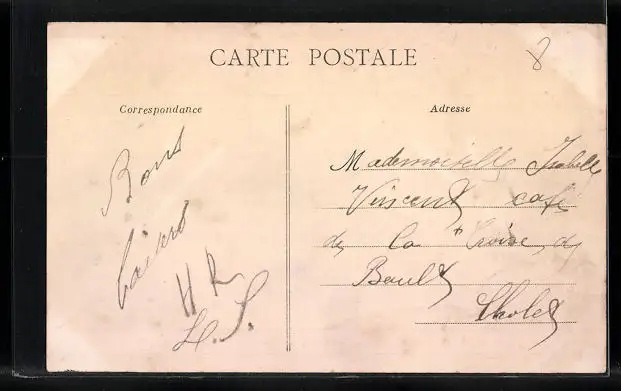 CARTE POSTALE
8
Correspondance
Adresse
Bons
baisers
H R
L. S.
Mademoiselle Isabelle
Vincent café
de la Croise de
Baul
Cholet